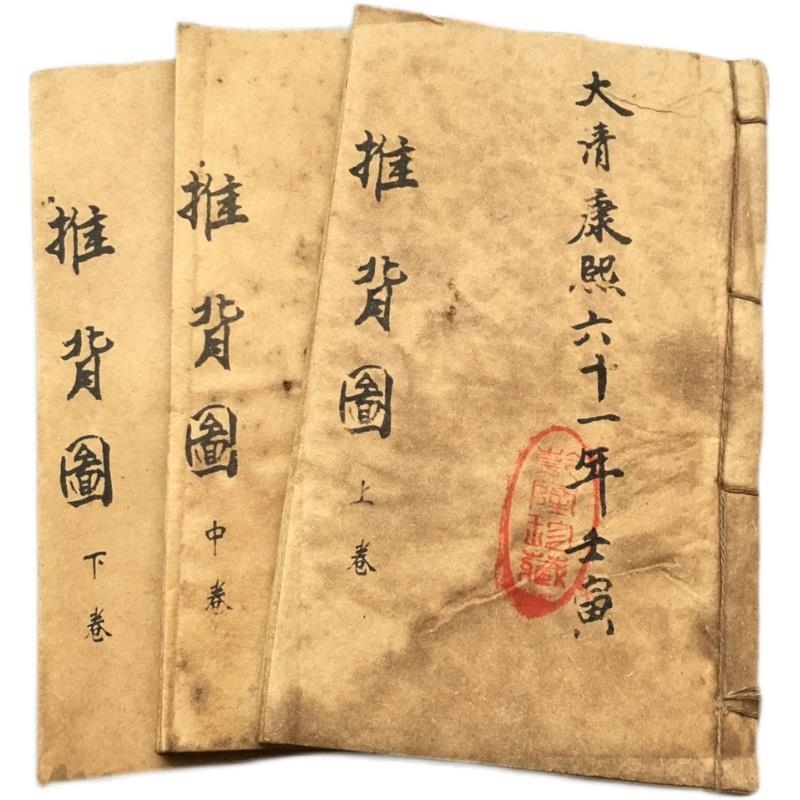 大清康熙六十一年壬寅
推背圖
上卷
乾隆珍藏
推背圖
中卷
推背圖
下卷